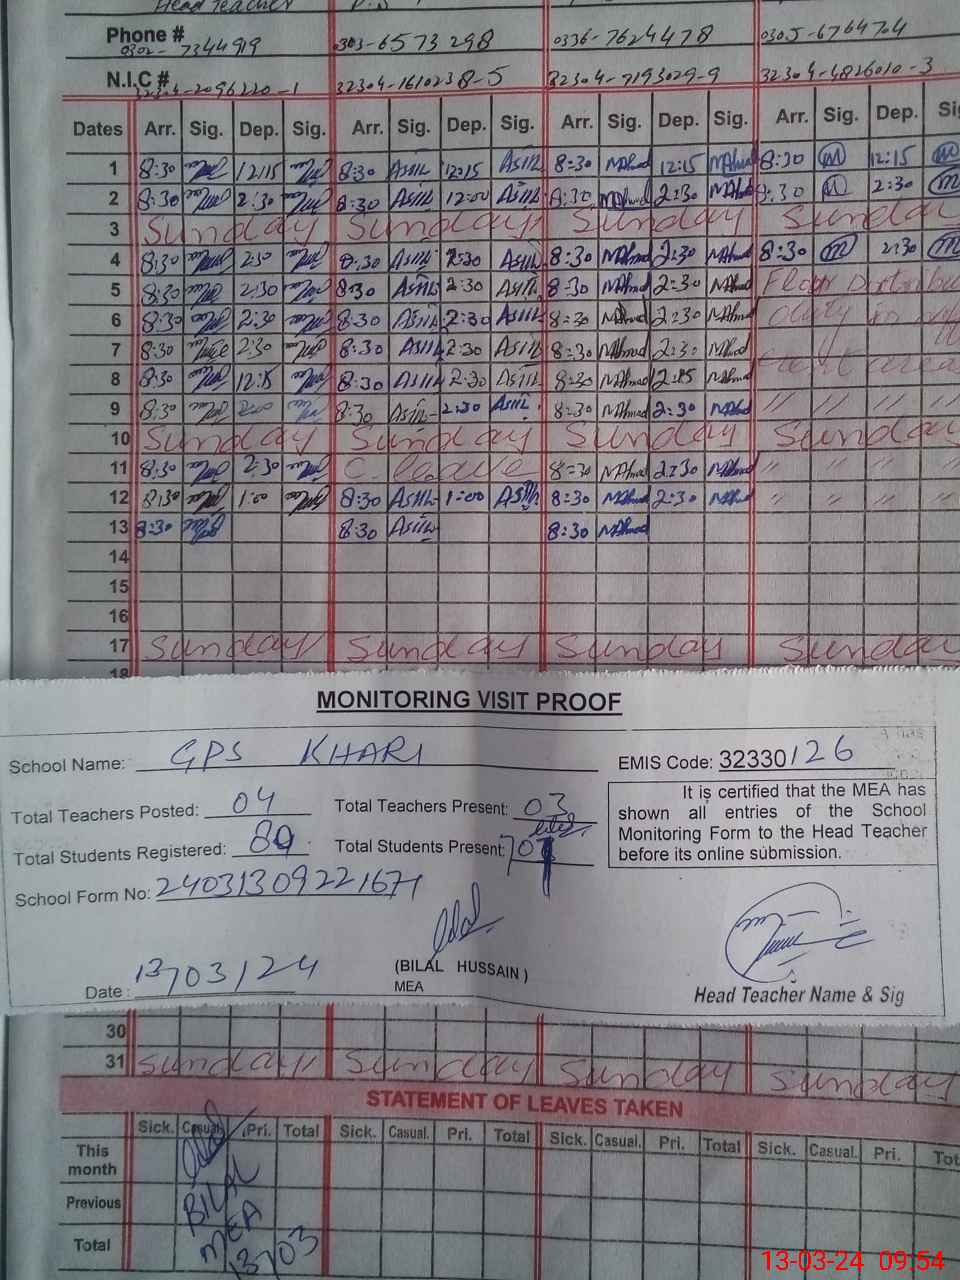 Head Teacher
Phone # 0302-7344919 0303-6573298 0336-7624478 0305-6764704
N.I.C # 32304-2096220-1 32304-1610238-5 32304-7193029-9 32304-4826010-3
Dates Arr. Sig. Dep. Sig. Arr. Sig. Dep. Sig. Arr. Sig. Dep. Sig. Arr. Sig. Dep. Sig
1 8:30 12:15 8:30 Asth 12:15 Asth 8:30 MAhmad 12:15 MAhmad 8:30 m 12:15 m
2 8:30 2:30 8:30 Asth 12:00 Asth 8:30 MAhmad 2:30 MAhmad 8:30 m 2:30 m
3 Sunday Sunday Sunday Sunday
4 8:30 2:30 8:30 Asth 2:30 Asth 8:30 MAhmad 2:30 MAhmad 8:30 m 2:30 m
5 8:30 2:30 8:30 Asth 2:30 Asth 8:30 MAhmad 2:30 MAhmad
6 8:30 2:30 8:30 Asth 2:30 Asth 8:30 MAhmad 2:30 MAhmad duty in
7 8:30 2:30 8:30 Asth 2:30 Asth 8:30 MAhmad 2:30 MAhmad
8 8:30 12:15 8:30 Asth 2:30 Asth 8:30 MAhmad 12:15 MAhmad
9 8:30 8:30 Asth 2:30 Asth 8:30 MAhmad 2:30 MAhmad // // // //
10 Sunday Sunday Sunday Sunday
11 8:30 2:30 C leave 8:30 MAhmad 2:30 MAhmad // // // //
12 8:30 1:00 8:30 Asth 1:00 Asth 8:30 MAhmad 2:30 MAhmad // // // //
13 8:30 8:30 Asth 8:30 MAhmad
14
15
16
17 Sunday Sunday Sunday Sunday
18
MONITORING VISIT PROOF
School Name: GPS KHARI EMIS Code: 32330126
Total Teachers Posted: 04 Total Teachers Present: 03
Total Students Registered: 89 Total Students Present:
School Form No: 24031309221671
It is certified that the MEA has
shown all entries of the School
Monitoring Form to the Head Teacher
before its online submission.
Date: 13/03/24
(BILAL HUSSAIN)
MEA
Head Teacher Name & Sig
30
31 Sunday Sunday Sunday Sunday
STATEMENT OF LEAVES TAKEN
Sick. Casual. Pri. Total Sick. Casual. Pri. Total Sick. Casual. Pri. Total Sick. Casual. Pri. Tot
This month
Previous
Total
BILAL
MEA
13/03
13-03-24 09:54